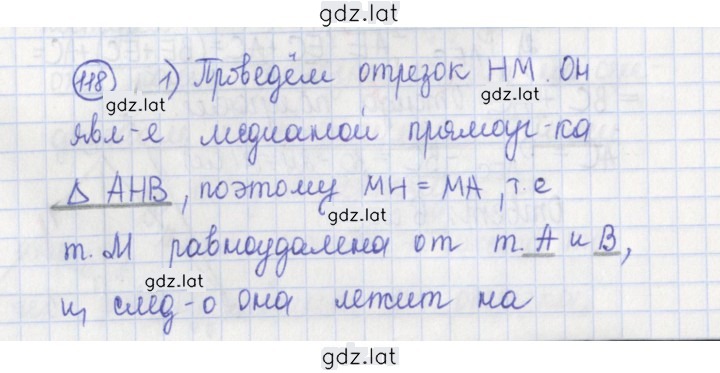 gdz.lat
118) 1) Проведём отрезок HM. Он
gdz.lat
явл-е медианой прямоуг-ка
Δ AHB, поэтому MH = MA, т.е
gdz.lat
т. M равноудалена от т. A и B,
gdz.lat
и, след-о она лежит на
gdz.lat